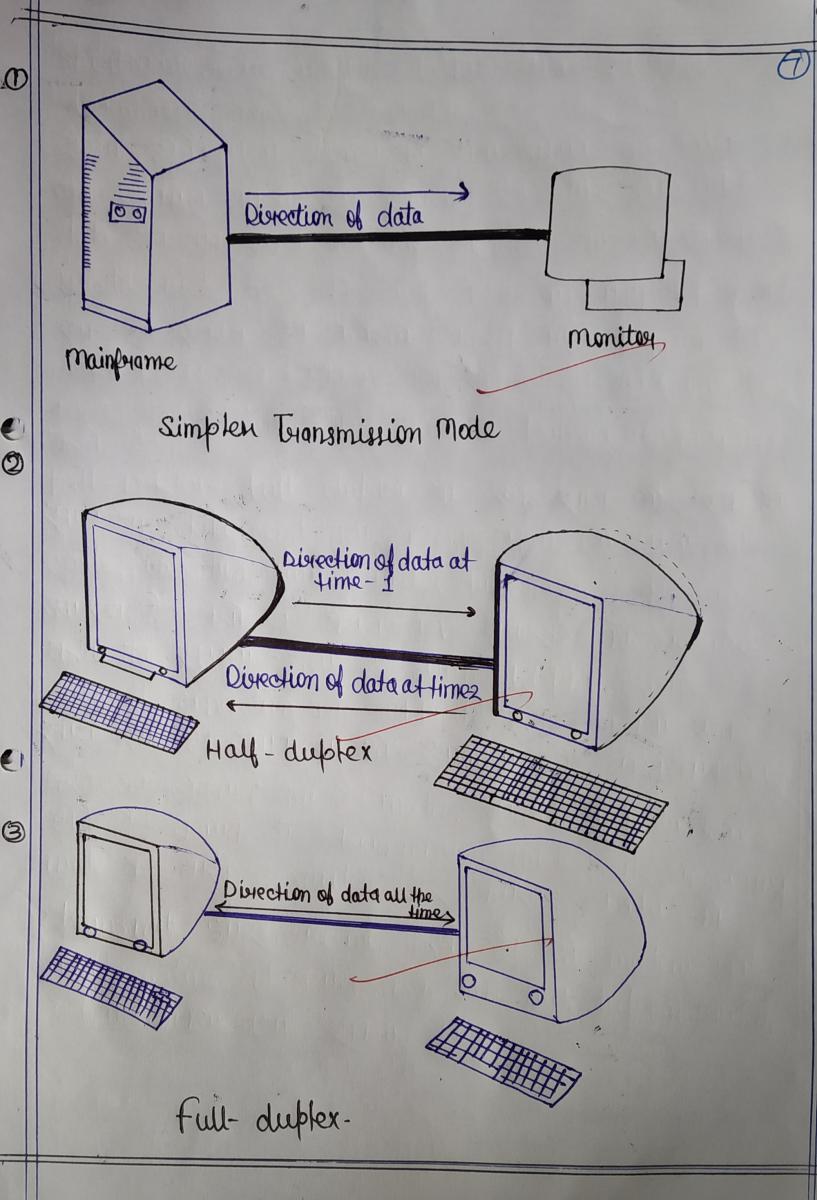 7
1
Direction of data
Monitor
Mainframe
Simplex Transmission Mode
2
Direction of data at
time-1
Direction of data at time2
Half-duplex
3
Direction of data all the
time
Full-duplex-